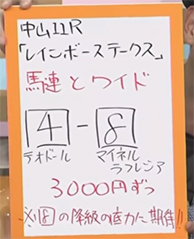 中山11R
「レインボーステークス」
馬連とワイド
4-8
テオドール マイネルラフレシア
3000円ずつ
※8の降級の底力に期待!!